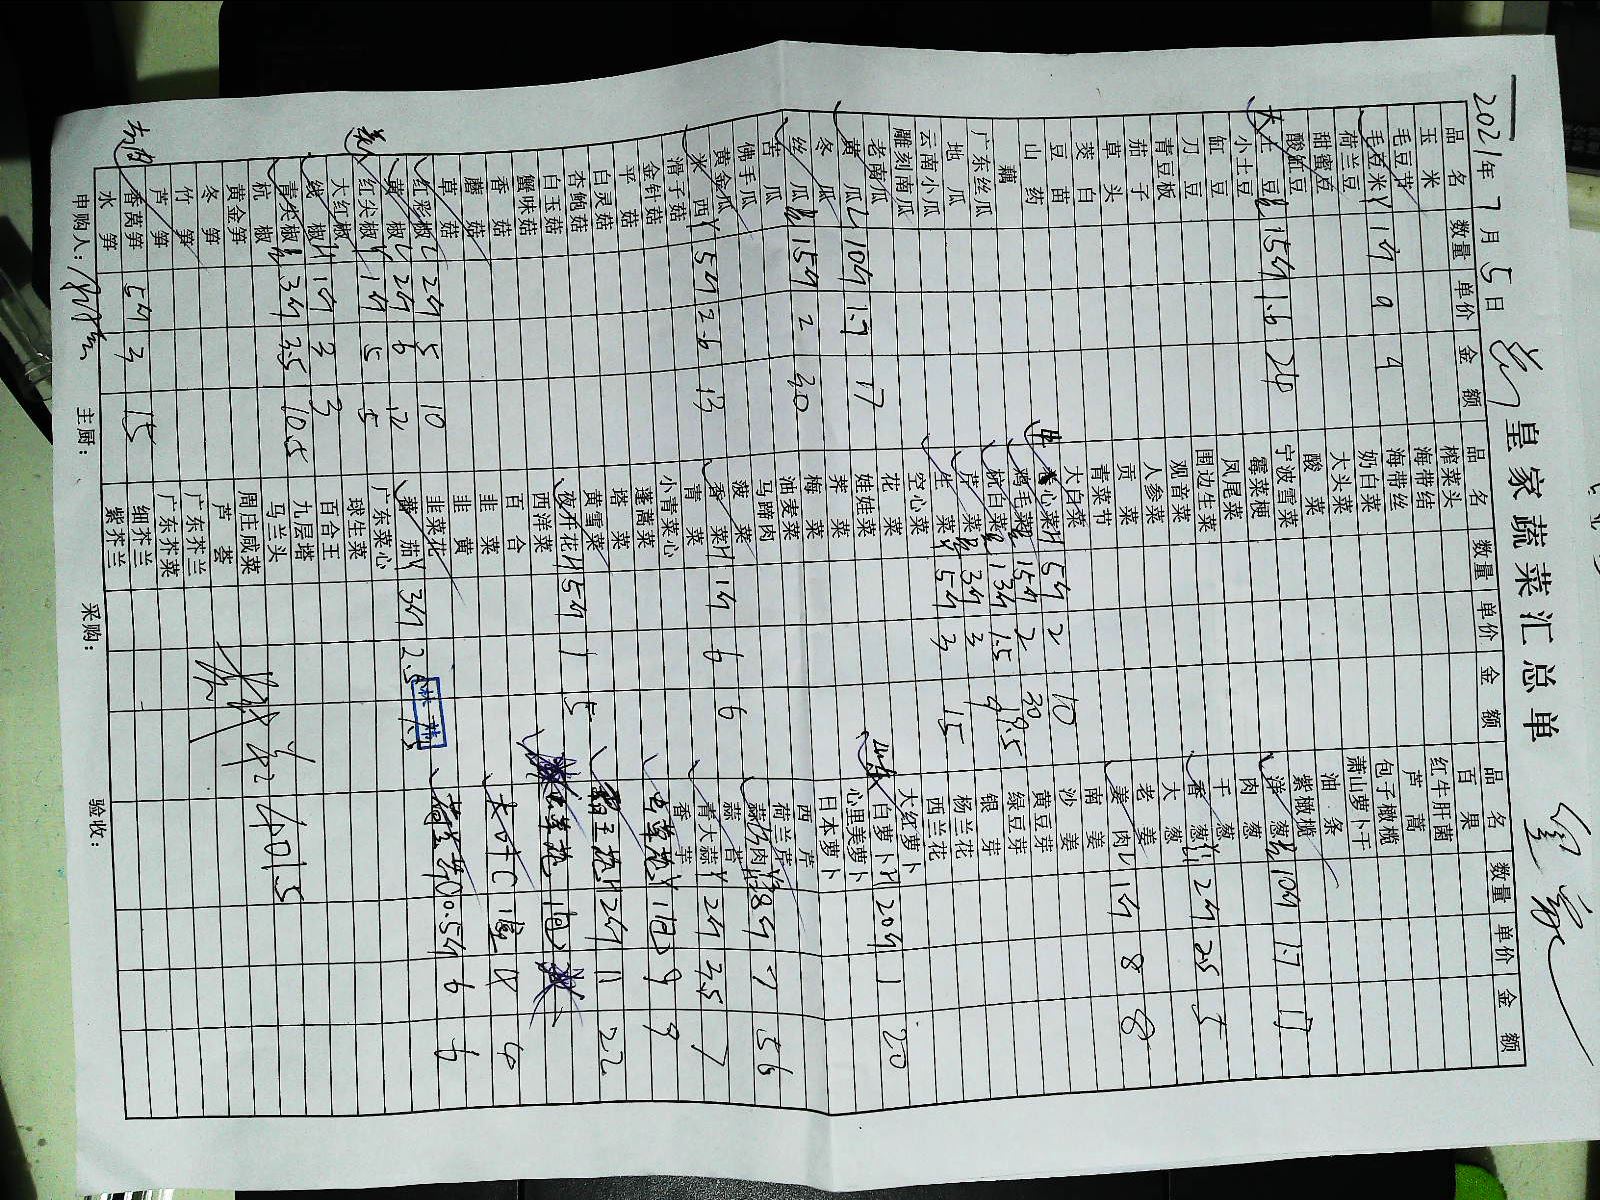 皇家蔬菜汇总单
2021年7月5日
品名 数量 单价 金额 品名 数量 单价 金额 品名 数量 单价 金额
玉米 榨菜头 百果
毛豆节 海带结 红牛肝菌
毛豆米 1斤 9 9 海带丝 芦蒿
荷兰豆 奶白菜 包子橄榄
甜蜜豆 大头菜 萧山萝卜干
酸缸豆 酸菜 油条
大土豆 15斤 1.6 24 宁波雪菜 紫橄榄
小土豆 霉菜梗 洋葱 10斤 1.7 17
缸豆 凤尾菜 肉葱
刀豆 围边生菜 干葱
青豆板 观音菜 香葱 2斤 2.5 5
茄子 人参菜 大葱
草头 贡菜 老姜
茭白 青菜节 姜肉 1斤 8 8
豆苗 大白菜 南姜
山药 心菜 5斤 2 10 沙姜
藕 鸡毛菜 15斤 2 30 黄豆芽
广东丝瓜 杭白菜 13斤 1.5 19.5 绿豆芽
地瓜 芹菜 3斤 3 9 银芽
云南小瓜 生菜 5斤 3 15 杨兰花
雕刻南瓜 空心菜 西兰花
老南瓜 花菜 大红萝卜
黄瓜 10斤 1.7 17 娃娃菜 白萝卜 20斤 1 20
冬瓜 荠菜 心里美萝卜
丝瓜 15斤 2 30 梅菜 日本萝卜
苦瓜 油麦菜 西芹
佛手瓜 马蹄肉 荷兰芹
黄金瓜 菠菜 蒜肉 8斤 7 56
米西 5斤 2.6 13 香菜 1斤 6 6 蒜苔
滑子菇 青菜 青大蒜 2斤 3.5 7
金针菇 小青菜心 香芋
平菇 蓬蒿菜 虫草花 1包 9 9
白灵菇 塔菜
杏鲍菇 黄雪菜 2斤 11 22
白玉菇 夜开花 5斤 1 5
蟹味菇 西洋菜
香菇 百合
蘑菇 韭菜
草菇 韭黄 0.5斤
红彩椒 2斤 5 10 韭菜花
黄椒 2斤 6 12 茄 3斤 2.5 7.5
红尖椒 1斤 5 5 广东菜心
大红椒 球生菜
线椒 1斤 3 3 百合王
青尖椒 3斤 3.5 10.5 九层塔
杭椒 马兰头
黄金笋 周庄咸菜
冬笋 芦荟
竹笋 广东芥兰
芦笋 广东芥菜
香莴笋 5斤 3 15 细芥兰
水笋 紫芥兰
401.5
申购人： 主厨： 采购： 验收：